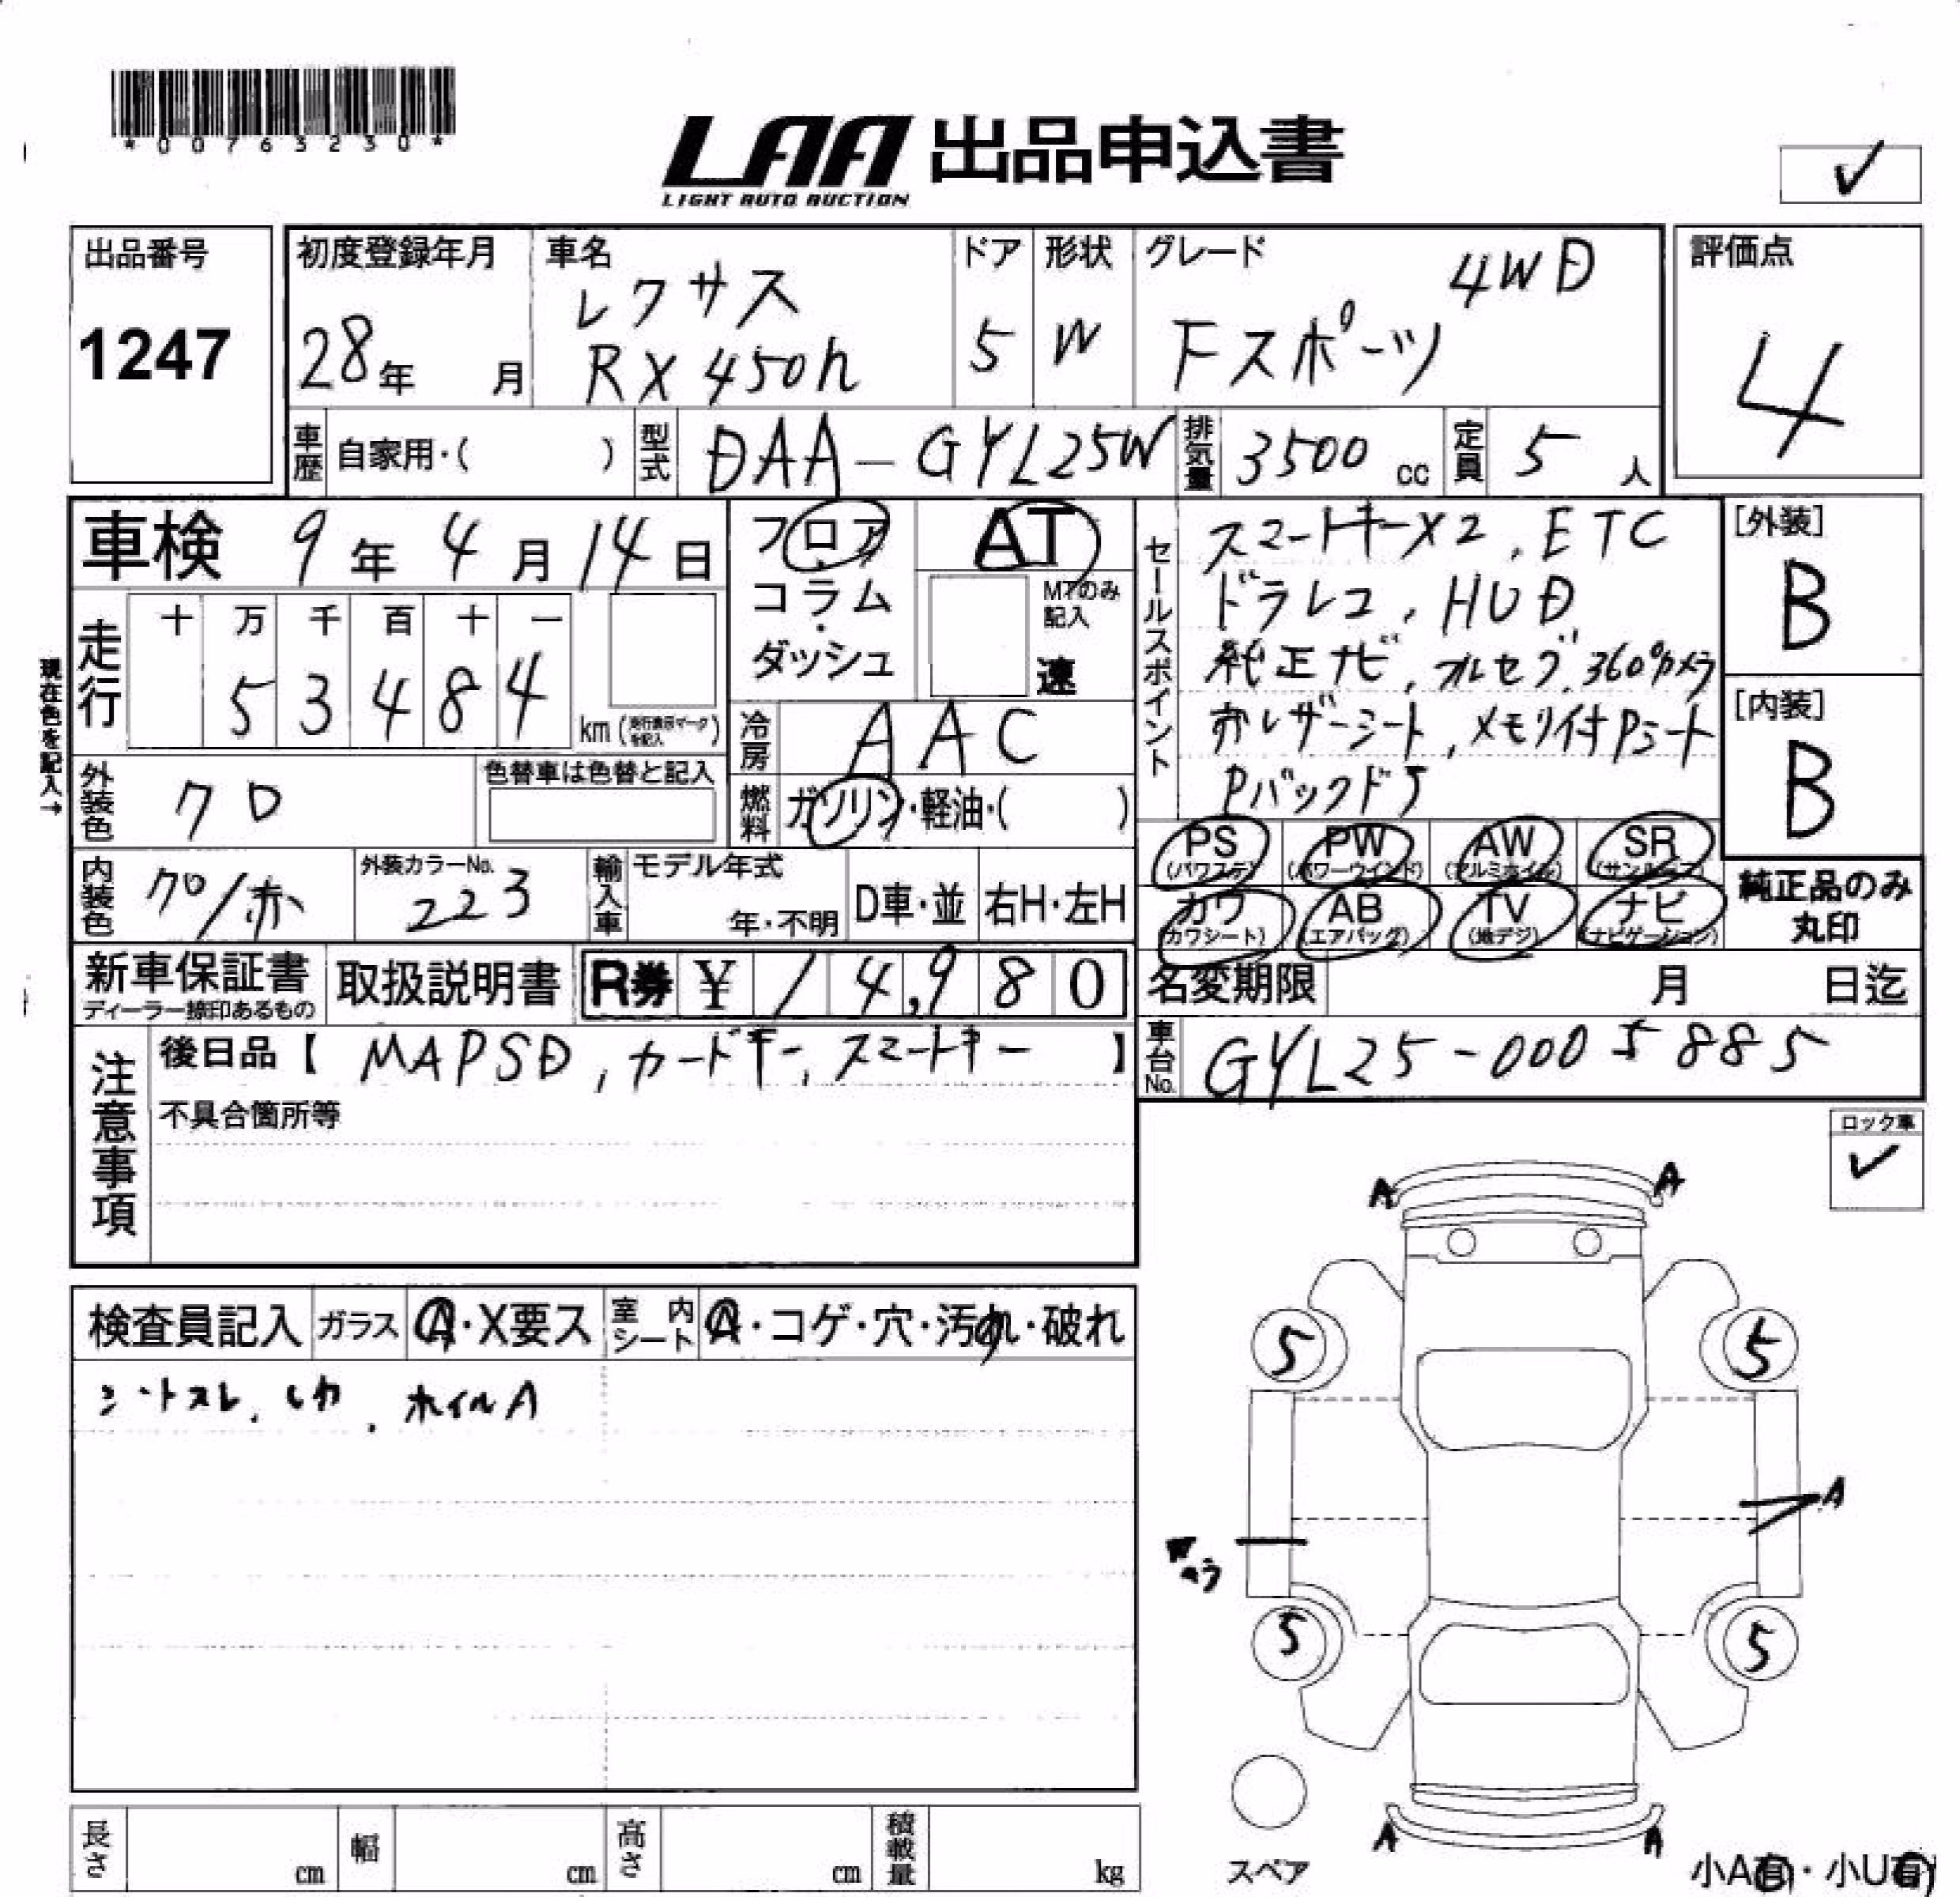 *00763230*
LAA 出品申込書
LIGHT AUTO AUCTION
出品番号
1247
初度登録年月
28年 月
車名
レクサス
RX450h
ドア
5
形状
W
グレード
4WD
Fスポーツ
評価点
4
車歴 自家用・( )
型式 DAA-GYL25W
排気量 3500 cc
定員 5 人
車検 9年4月14日
走行
十 万 千 百 十 一
5 3 4 8 4
km (走行表示マークを記入)
現在色を記入→
フロア
コラム
・
ダッシュ
AT
MTのみ記入
速
冷房 AAC
燃料 ガソリン・軽油・( )
セールスポイント
スマートキーX2, ETC
ドラレコ, HUD
純正ナビ, フルセグ, 360°カメラ
赤レザーシート, メモリ付Pシート
Pバックドア
[外装]
B
[内装]
B
外装色 クロ
色替車は色替と記入
内装色 クロ/赤
外装カラーNo. 223
輸入車
モデル年式
年・不明
D車・並
右H・左H
PS (パワステ)
PW (パワーウインド)
AW (アルミホイル)
SR (サンルーフ)
カワ (カワシート)
AB (エアバッグ)
TV (地デジ)
ナビ (ナビゲーション)
純正品のみ
丸印
新車保証書
ディーラー捺印あるもの
取扱説明書
R券 ¥ 14,980
名変期限 月 日迄
車台No. GYL25-0005885
注意事項
後日品【 MAPSD, カードキー, スマートキー 】
不具合箇所等
ロック車
検査員記入
ガラス A・X要ス
室内シート A・コゲ・穴・汚れ・破れ
シートスレ, ホイルA
A A
5 5
A
5 5
A A
スペア
長さ cm
幅 cm
高さ cm
積載量 kg
小A有・小U有